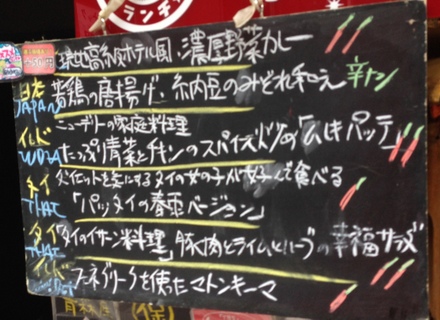 ランチ
高級ホテル風・濃厚野菜カレー
日本 若鶏の唐揚げ・納豆のみぞれ和え 辛ナシ
JAPAN ニューデリーの家庭料理
インド たっぷり青菜とチキンのスパイス炒め「ムルギパッテ」
INDIA
タイ ダイエットを気にするタイの女の子が好んで食べる
THAI 「パッタイの春雨バージョン」
タイ 「タイのイサーン料理」豚肉とライムとハーブの幸福サラダ
THAI
インド フェネグリークを使ったマトンキーマ